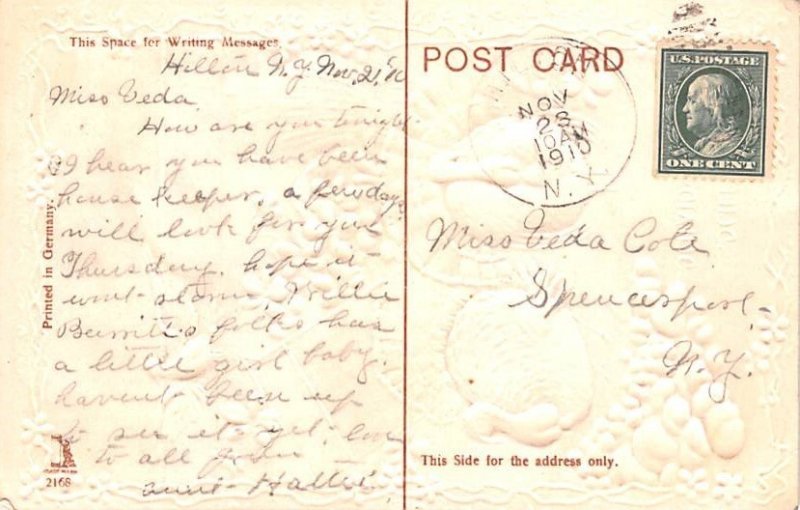 This Space for Writing Messages
Hilton N.Y. Nov. 21,
Miss Veda
How are you tonight
I hear you have been
house keeper, a few days
will look for you
Thursday. hope it
wont storm, Willie
Burritts folks has
a little girl baby.
havent been up
to see it yet. love
to all from
aunt Hattie
Printed in Germany.
2168
POST CARD
NOV
28
10 AM
1910
N.Y.
U.S. POSTAGE
ONE CENT
Miss Veda Cole
Spencerport
N.Y.
This Side for the address only.